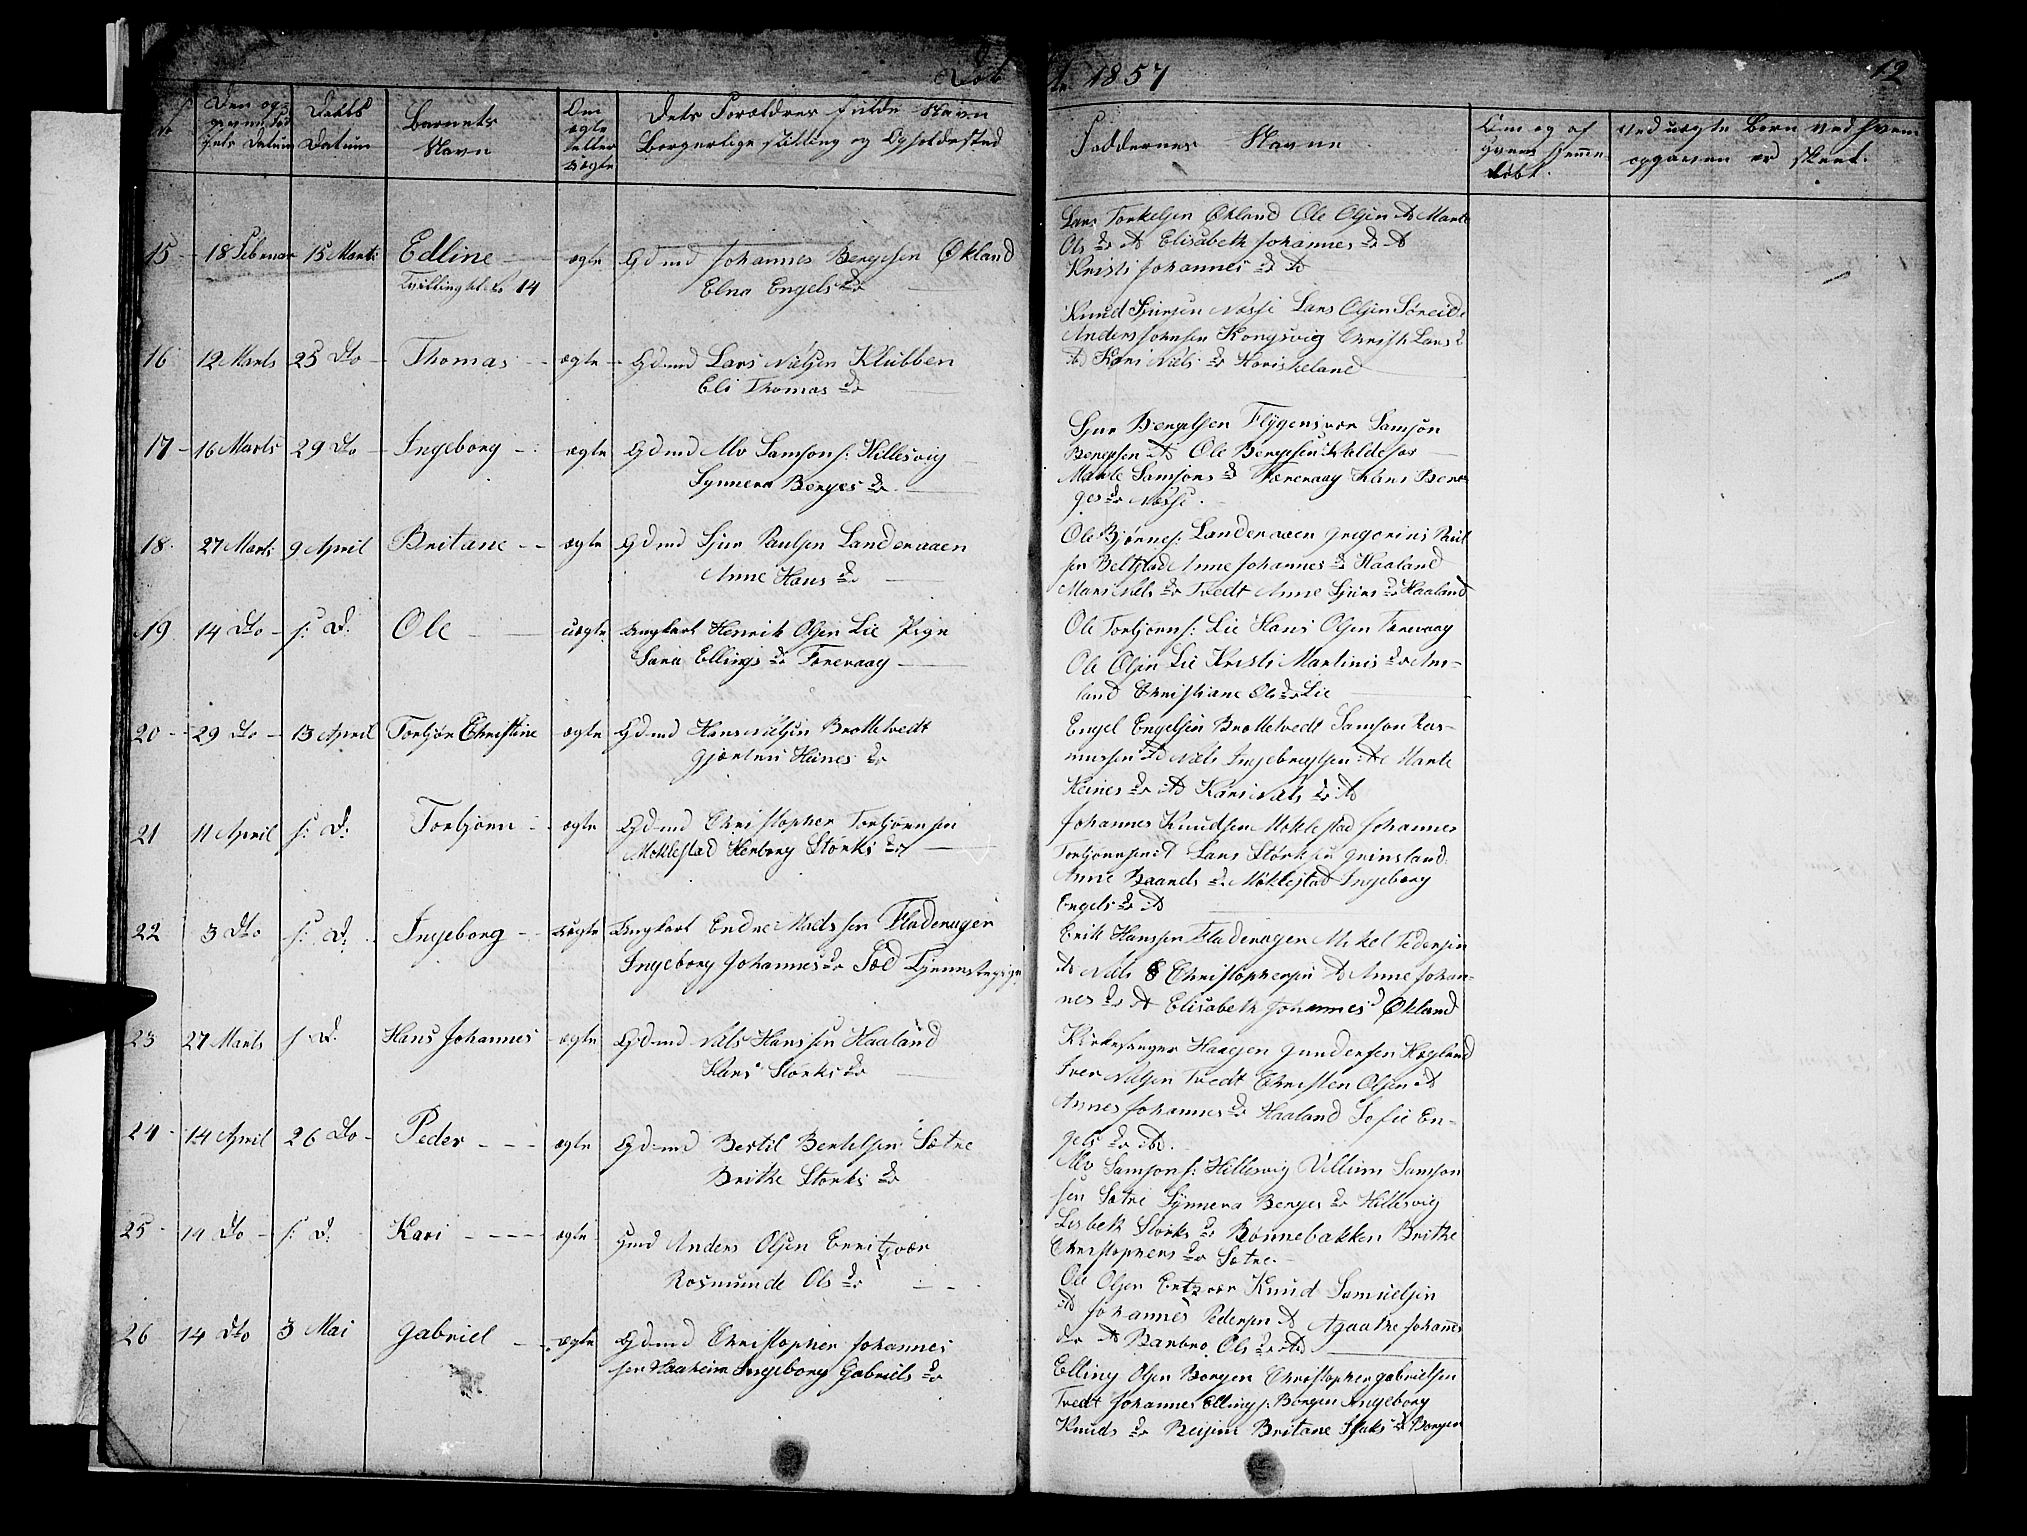 Døbte 1857
12
No
Den opgivne Fødsels Datum
Daabs Datum
Barnets Navn
Om ægte eller uægte
Dets Forældres fulde Navn Borgerlige stilling og Opholdssted
Faddernes Navne
Om og af hvem hjemmedøbt.
Ved uægte Børn ved hvem opgaven er skeet.
15 - 18 Februar 15 Marts Edline ægte Gdmd Johannes Bergesen Økland
Tvilling til No 14 Elna Engels Dr
Lars Torkelsen Økland Ole Olsen Do Marte
Ols Dr Do Elisabeth Johannes Dr Do
Kristi Johannes Dr Do
16 12 Marts 25 Do - Thomas - ægte - Gdmd Lars Nilsen Klubben
Eli Thomas Dr
Knud Sjursen Nøsse Lars Olsen Søreide
Anders Johnsen Kongsvig Christi Lars D
Do Kari Nils Dr
17 - 16 Marts 29 Do - Ingeborg - ægte Gdmd Alv Samsons: Hillesvig
Synneva Berges Dr.
Sjur Bergesen Flygensvær Samson
Bergesen Do Ole Bergesen
Marte Samsons D Foreraag Kari Ber-
ges Dr Nøsse.
18. 27 Marts 9 April Britane - - ægte Gdmd Sjur Paulsen Landeraaen
Anne Hans Dr
Ole Bjørnes: Landeraaen Gregorius Paul
sen Beltestad Anne Johannes D Haaland
Mari Nils Dr Tvedt Anne Sjurs Dr Haaland
19 14 Do - s: D. Ole - uægte Ungkarl Henrik Olsen Lie Pige
Sara Ellings Dr Foreraag
Ole Torbjørns: Lie Hans Olsen Foreraag
Ole Olsen Lie Kristi Martinis Dr Aas-
land Christiane Ols Dr Lie
20 - 29 Do - 13 April Torbjør Christine ægte Gdmd Hans Nilsen Brottetvedt
Gjørteri Heines Dr
Engel Engelsen Brottetvedt Samson Ras-
mussen Do Nils Ingebrigtsen Do Marte
Heines Dr Do Kari Nils Dr Do
21 11 April s: D: Torbjørn - ægte Gdmd Christopher Torbjørnsen
Møklestad Herborg Størks Dr
Johannes Knudsen Møklestad Johannes
Torbjørnsen Do Lars Størksen Grinsland
Anne Baards D. Møklestad Ingeborg
Engels Dr Do
22 3 Do s: D: Ingeborg - uægte Ungkarl Endre Madssen Fladerager
Ingeborg Johannes Dr Sæd Tjenestepige
Erik Hanssen Fladerager Mikel Pedersen
Do Nils Christophersen Do Anne Johan-
nes Dr Do Elisabeth Johannes D Økland
23 27 Marts s D. Hans Johannes ægte Gdmd Nils Hanssen Haaland
Kari Størks Dr
Kirkesanger Haagen Gundersen Høgland
Iver Nilsen Tvedt Christen Olsen Do
Anne Johannes Dr Haaland Sofie En-
gels Dr ibd.
24 - 14 April 26 Do - Peder - - - ægte Gdmd Bertil Bertelsen Sætre
Brithe Størks Dr
Alv Samsons: Hillesvig Villum Samson
sen Sætre Synneva Berges Dr Hillesvig
Lisbeth Størks Dr Rønnebakken Brithe
Christophers Dr Sætre.
25 - 14 Do - s: D: Kari - - - - ægte Gmd Anders Olsen Entzvær
Rosmunde Ols Dr
Ole Olsen Entzvær Knud Samuelsen
Do Johannes Pedersen Do Agaathe Johannes
Dr Do Barbro Ols Dr Do
26 14 Do 3 Mai Gabriel - ægte Gdmd Christopher Johannes
sen Haaheim Ingeborg Gabriels Dr
Elling Olsen Borgen Christopher Gabrielsen
Tvedt Johannes Ellings: Borgen Ingeborg
Knuds Dr Britane Isaks Dr Borgen